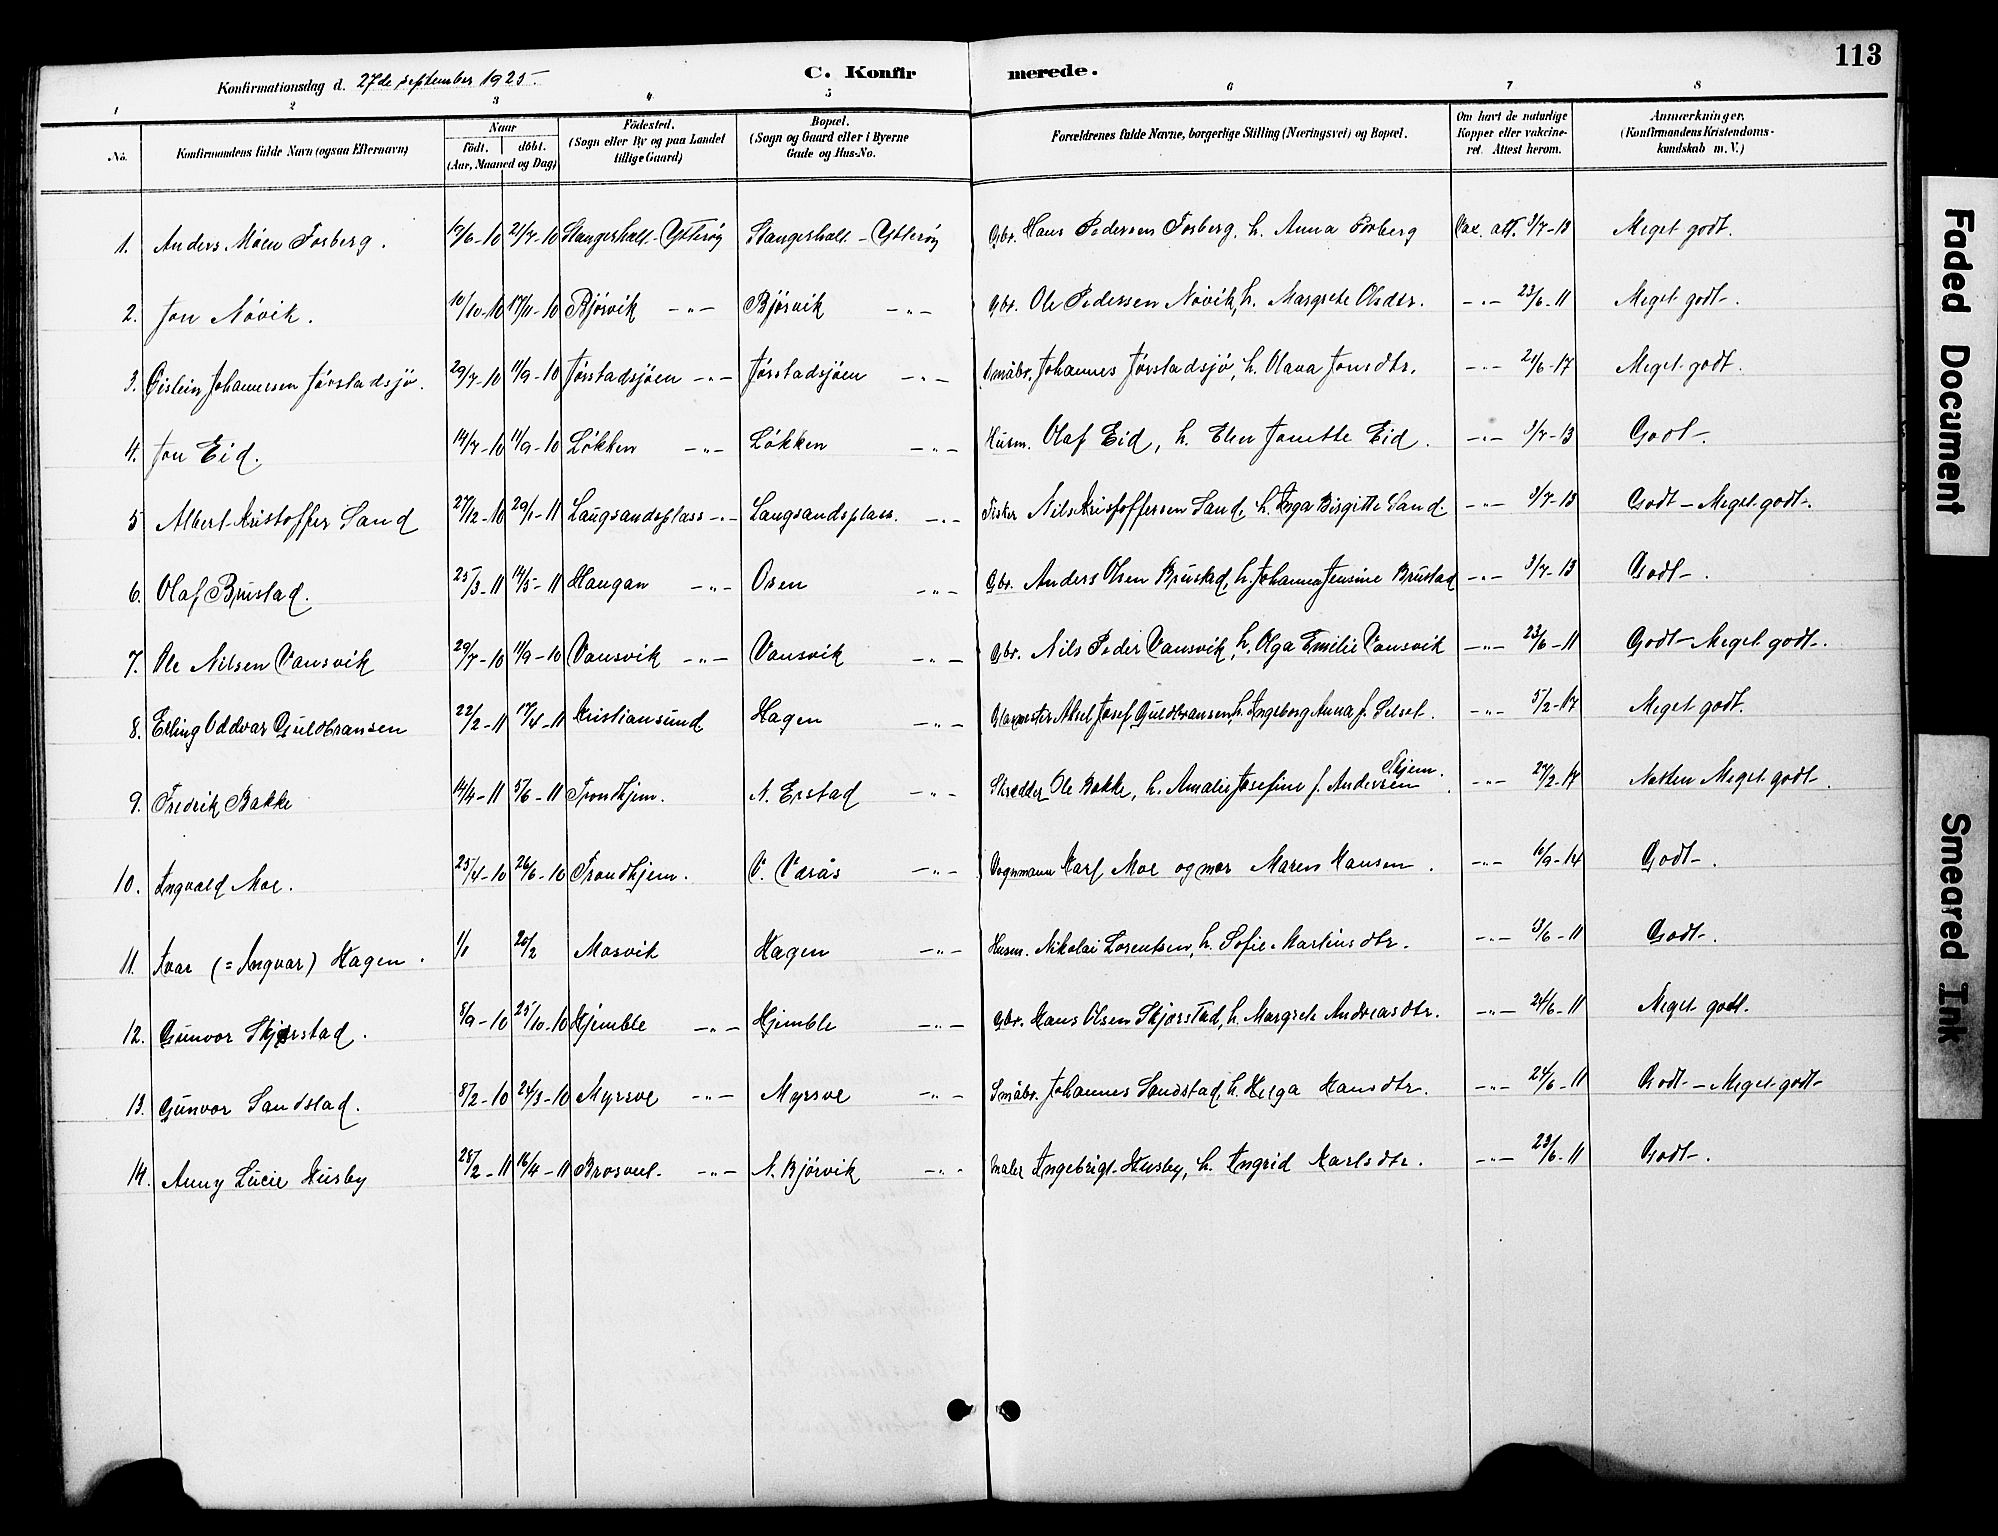 113
Konfirmationsdag d. 27de september 1925.
C. Konfirmerede.
1 2 3 4 5 6 7 8
No. Konfirmandens fulde Navn (ogsaa Efternavn) Naar födt. döbt. (Aar, Maaned og Dag) Födested. (Sogn eller By og paa Landet tillige Gaard) Bopæl. (Sogn og Gaard eller i Byerne Gade og Hus-No. Forældrenes fulde Navne, borgerlige Stilling (Næringsvei) og Bopæl. Om havt de naturlige Kopper eller vakcineret. Attest herom. Anmærkninger. (Konfirmandens Kristendomskundskab m. V.)
1. Anders Möen Forberg. 19/6-10 21/7-10 Slangerholt - Ytterøy Slangerholt - Ytterøy Gbr. Hans Pedersen Forberg, h. Anna Forberg Vac. att. 3/7-13 Meget godt.
2. Jon Növik. 10/10-10 17/11-10 Bjørvik -"- Bjørvik -"- Gbr. Ole Pedersen Növik, h. Margrete Olsdtr. -"- 23/6-11 Meget godt.
3. Gistein Johannessen Jørstadsjø. 29/7-10 11/9-10 Jørstadsjøen -"- Jørstadsjøen -"- Småbr. Johannes Jørstadsjø, h. Olava Jonsdtr. -"- 21/6-17 Meget godt.
4. Jon Eid. 14/7-10 11/9-10 Løkken -"- Løkken -"- Husm. Olaf Eid, h. Elen Jonette Eid. -"- 3/7-13 Godt.
5 Albert Kristoffer Sand 27/12-10 29/1-11 Laugsandsplass -"- Laugsandsplass. -"- Fisker Nils Kristoffersen Sand, h. Inga Birgitte Sand. -"- 3/7-13 Godt - Meget godt.
6. Olaf Brustad. 25/3-11 14/5-11 Haugan -"- Osen -"- Gbr. Anders Olsen Brustad, h. Johanna Jensine Brustad -"- 3/7-13 Godt.
7. Ole Nilsen Vansvik 29/7-10 11/9-10 Vansvik -"- Vansvik -"- Gbr. Nils Peder Vansvik, h. Olga Emilie Vansvik -"- 23/6-11 Godt - Meget godt.
8. Erling Oddvar Guldbransen 22/2-11 17/4-11 Kristiansund Hagen -"- Glasmester Aksel Josef Guldbransen, h. Ingeborg Anna f. Selset. -"- 5/2-17 Meget godt.
9. Fredrik Bakke 14/4-11 5/6-11 Trondhjem. N. Erstad -"- Skredder Ole Bakke, h. Amalie Josefine f. Andersen -"- 27/2-17 Nesten Meget godt.
10. Ingvald Moe. 25/4-10 26/6-10 Trondhjem. V. Vårås -"- Vognmann Karl Moe og mor Maren Hansen. -"- 16/9-14 Godt.
11. Ivar (= Ingvar) Hagen. 1/1 20/2 Mosvik Hagen -"- Husm. Nikolai Lorentsen, h. Sofie Martinsdtr. -"- 13/6-11 Godt.
12. Gunvor Skjerstad. 8/9-10 25/10-10 Hjemble -"- Hjemble -"- Gbr. Hans Olsen Skjerstad, h. Margrete Andreasdtr. -"- 24/6-11 Meget godt.
13. Gunvor Sandstad. 8/2-10 24/3-10 Myrsve -"- Myrsve -"- Småbr. Johannes Sandstad, h. Helga Hansdtr. -"- 24/6-11 Godt - Meget godt
14. Anny Lucie Husby 28/2-11 16/4-11 Brosveet. -"- N. Bjørvik -"- maler Ingebrigt Husby, h. Ingrid Karlsdtr. -"- 23/6-11 Godt.
Faded Document
Smeared Ink